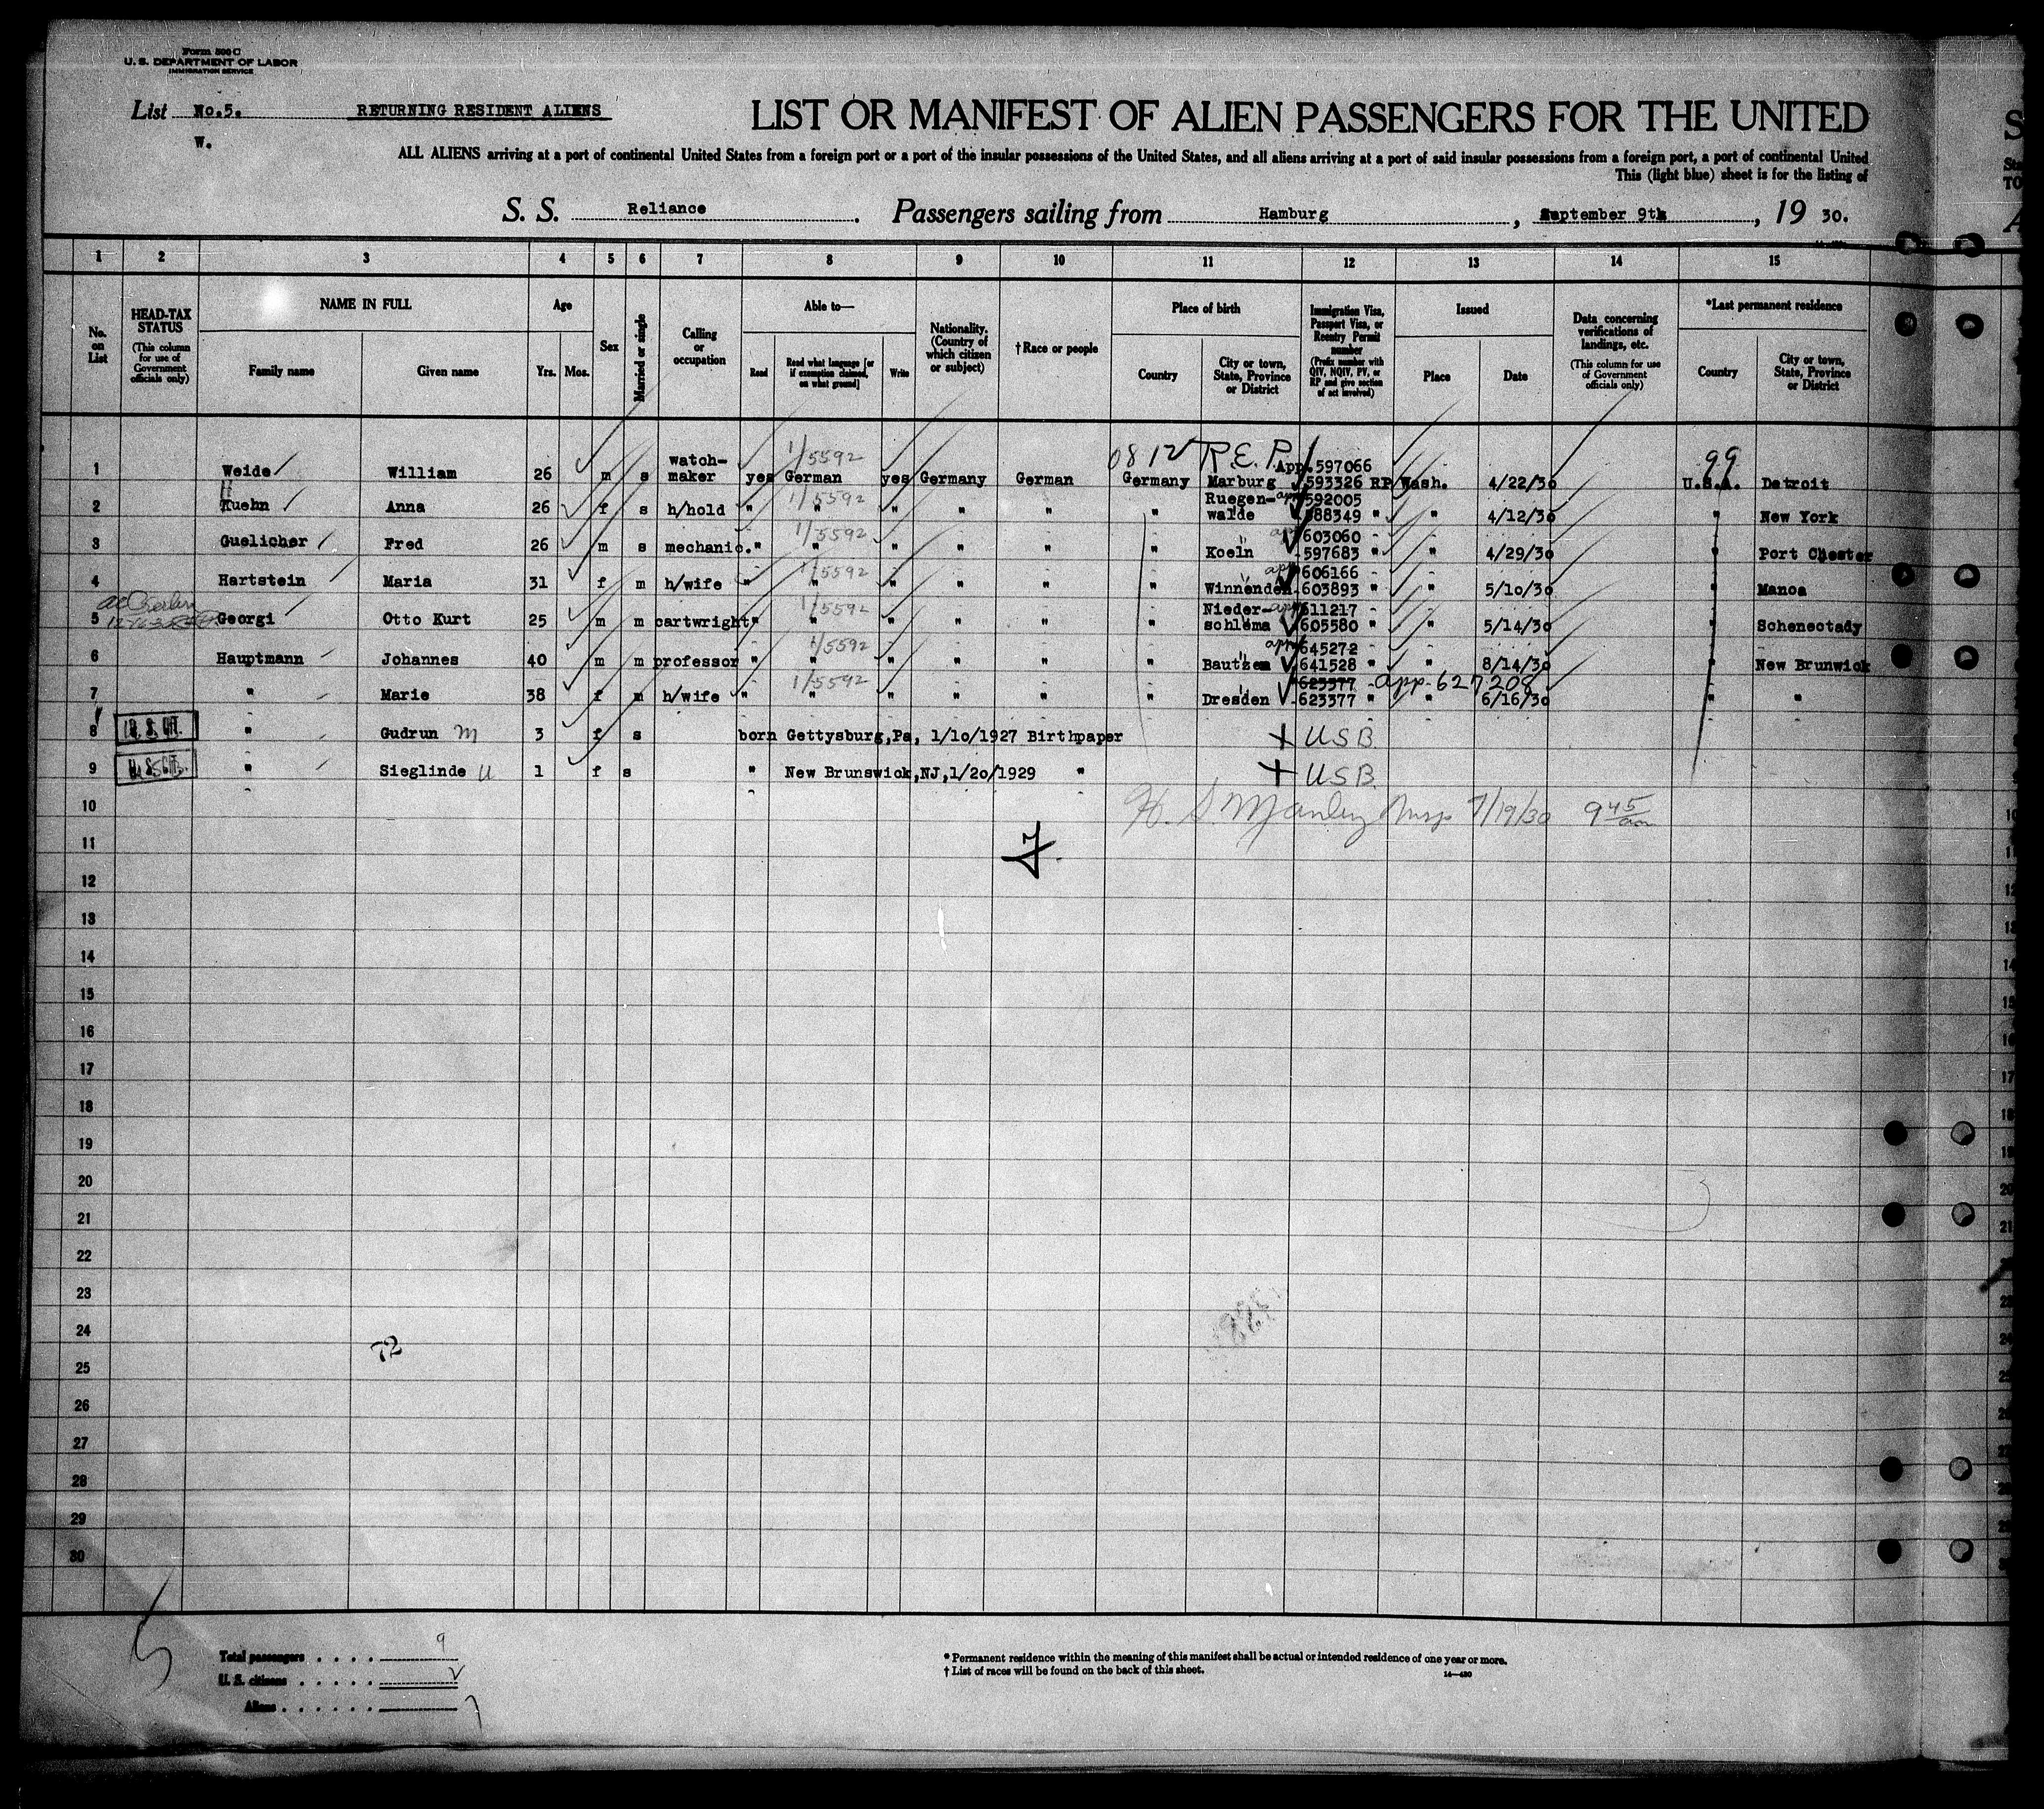 Form 500 C
U. S. DEPARTMENT OF LABOR
IMMIGRATION SERVICE
List No.5. RETURNING RESIDENT ALIENS LIST OR MANIFEST OF ALIEN PASSENGERS FOR THE UNITED
W.
ALL ALIENS arriving at a port of continental United States from a foreign port or a port of the insular possessions of the United States, and all aliens arriving at a port of said insular possessions from a foreign port, a port of continental United
This (light blue) sheet is for the listing of
S. S. Reliance. Passengers sailing from Hamburg, September 9th, 19 30.
1 2 3 4 5 6 7 8 9 10 11 12 13 14 15
No. on List
HEAD-TAX STATUS (This column for use of Government officials only)
NAME IN FULL Family name Given name
Age Yrs. Mos.
Sex
Married or single
Calling or occupation
Able to— Read Read what language [or if exemption claimed, on what ground] Write
Nationality. (Country of which citizen or subject)
†Race or people
Place of birth Country City or town, State, Province or District
Immigration Visa, Passport Visa, or Reentry Permit number (Prefix number with QIV, NQIV, PV, or RP and give section of act involved)
Issued Place Date
Data concerning verifications of landings, etc. (This column for use of Government officials only)
*Last permanent residence Country City or town, State, Province or District
0812 R.E.P. 99
1 Weide William 26 m s watch-maker yes German 1/5592 yes Germany German Germany Marburg App. 597066 593326 RP Wash. 4/22/30 U.S.A. Detroit
2 Kuehn H Anna 26 f s h/hold " " 1/5592 " " " " Ruegen-walde app 592005 588349 " " 4/12/30 " New York
3 Guelicher Fred 26 m s mechanic. " " 1/5592 " " " " Koeln app 603060 597683 " " 4/29/30 " Port Chester
4 Hartstein Maria 31 f m h/wife " " 1/5592 " " " " Winnenden app 606166 603893 " " 5/10/30 " Manoa
5 Georgi Otto Kurt 25 m m cartwright " " 1/5592 " " " " Nieder-schlema app 611217 605580 " " 5/14/30 " Schenectady
6 Hauptmann Johannes 40 m m professor " " 1/5592 " " " " Bautzen app 645272 641528 " " 8/14/30 " New Brunwick
7 " Marie 38 f m h/wife " " 1/5592 " " " " Dresden 623377 app. 627208 623377 " " 6/16/30 " "
8 " Gudrun M 3 f s born Gettysburg,Pa, 1/10/1927 Birthpaper X USB.
9 " Sieglinde U 1 f s " New Brunswick,NJ,1/20/1929 " X USB.
10 H. S Manley Insp 9/19/30 9 45
11
12
13
14
15
16
17
18
19
20
21
22
23
24
72
25
26
27
28
29
30
Total passengers . . . . 9
U. S. citizens . . . . .
Aliens . . . . . . . 7
* Permanent residence within the meaning of this manifest shall be actual or intended residence of one year or more.
† List of races will be found on the back of this sheet.
14—430